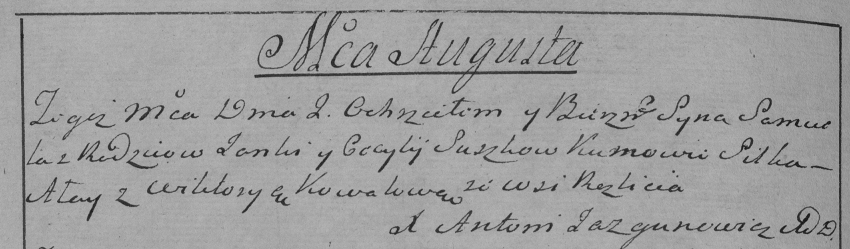 Mca Augusta
Tegoż Mca Dnia 2. Ochrzcilem y Bierzm Syna Samue
la z Rodziców Janki y Cecylij Suszkow Kumowie Silka
Atay z Wiktoryą Kowalową ze wsi
X Antoni Jazgunowicz